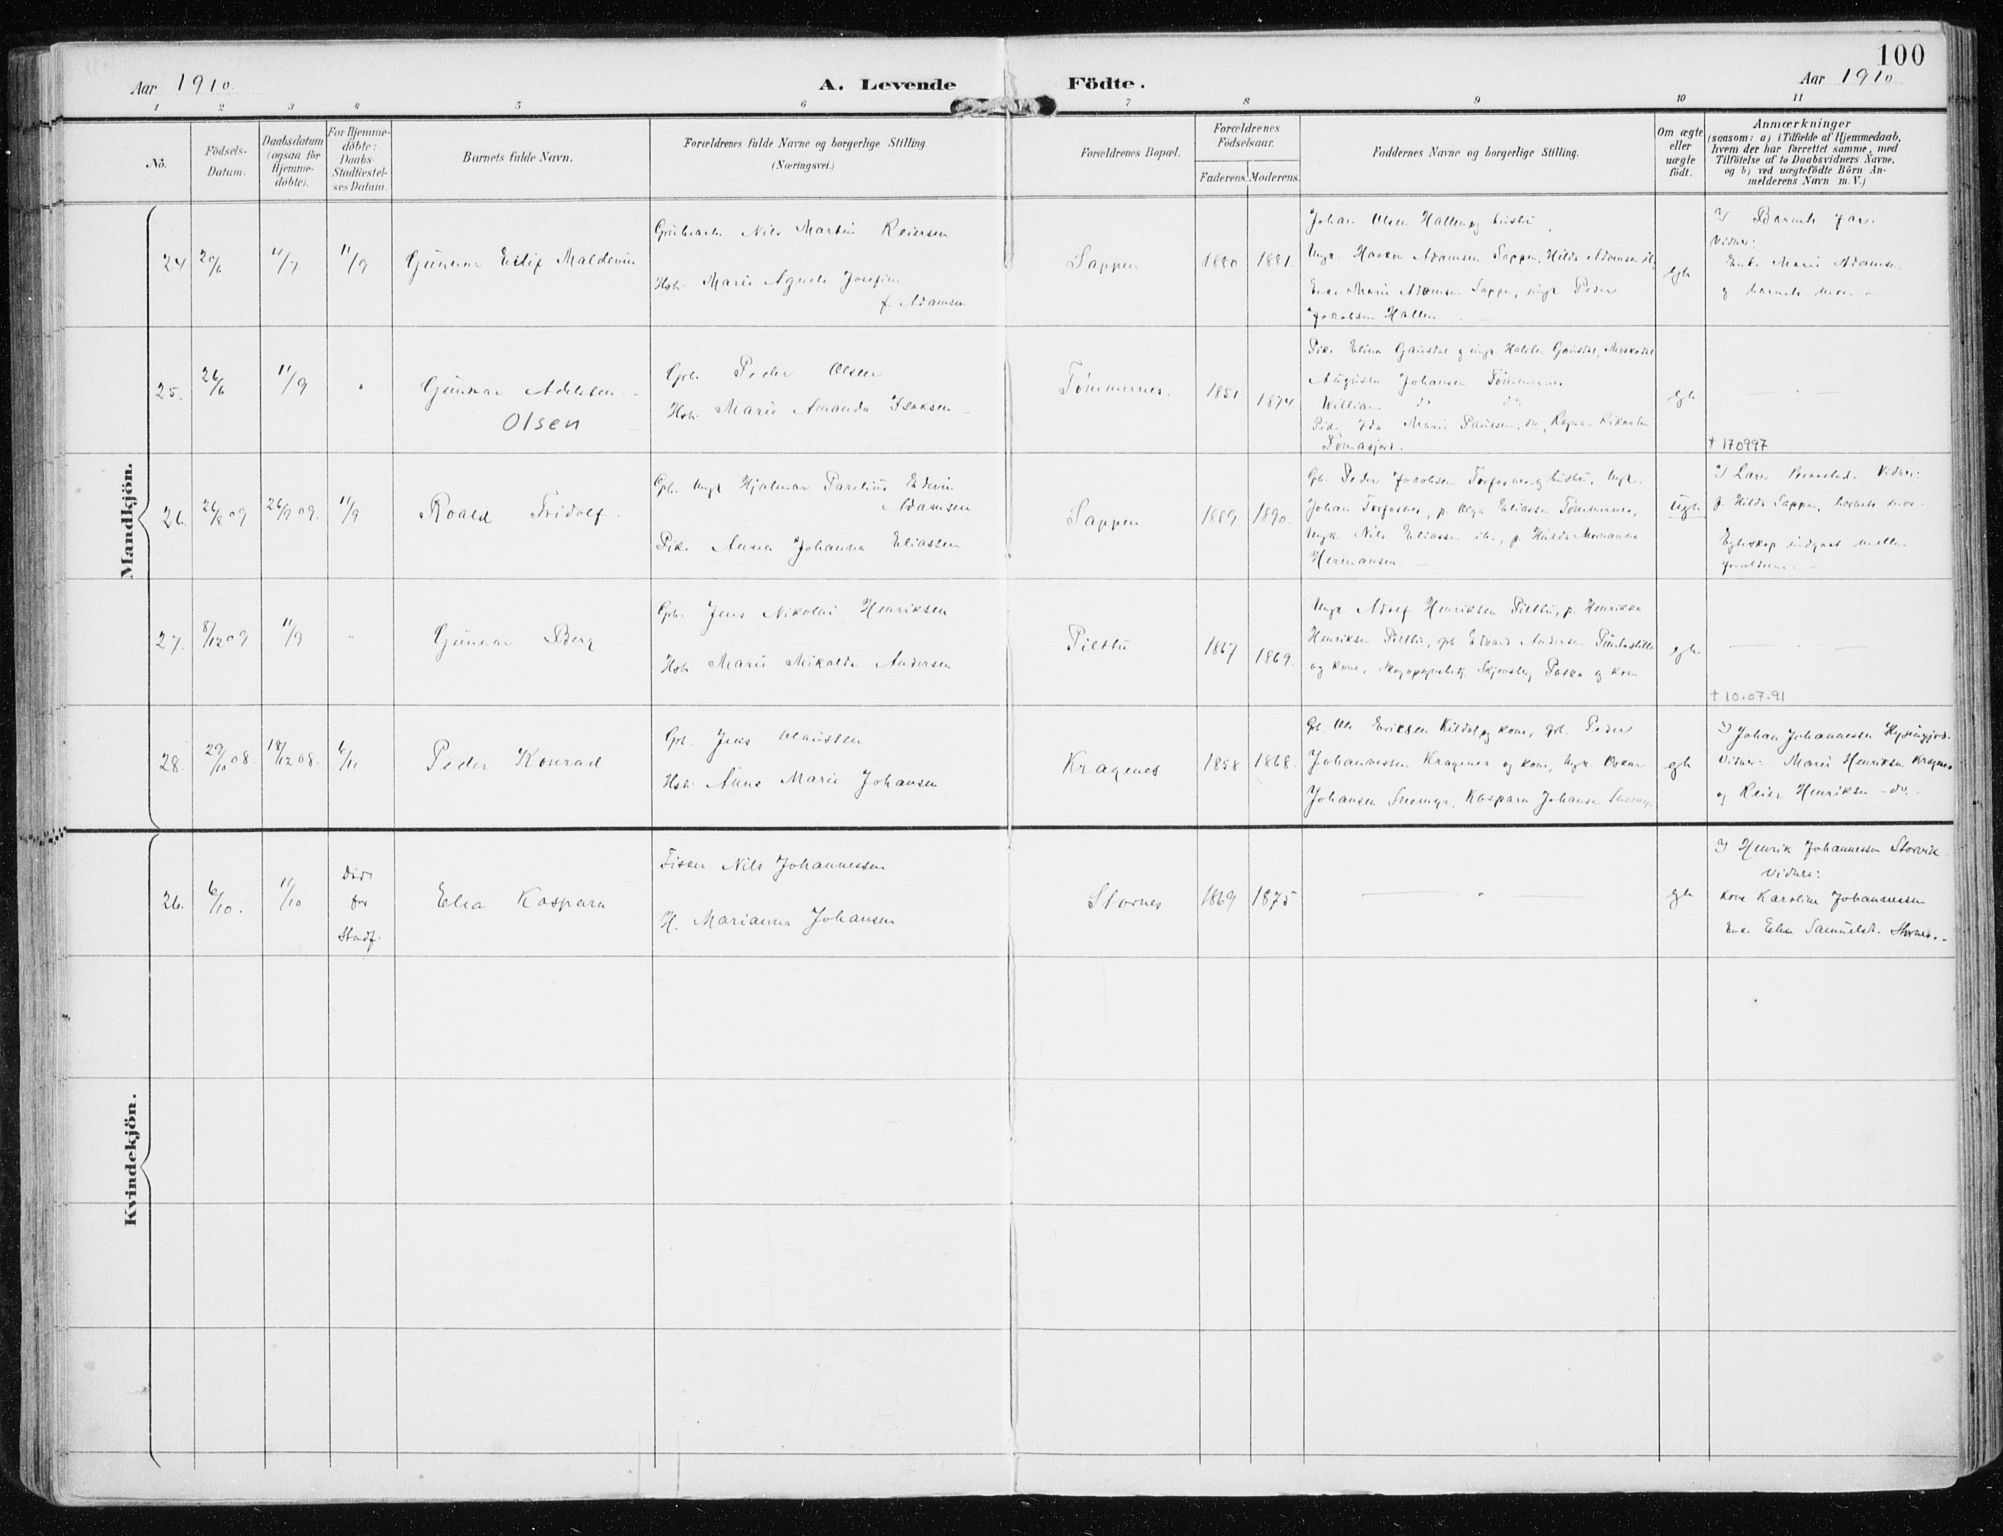 100
Aar 1910
A. Levende Födte.
Aar 1910
1 2 3 4 5 6 7 8 9 10 11
No.
Födsels-
Datum.
Daabsdatum
(ogsaa for
Hjemme-
döbte).
For Hjemme-
döbte:
Daabs-
Stadfæstel-
ses Datum.
Barnets fulde Navn.
Forældrenes fulde Navne og borgerlige Stilling
(Næringsvei.)
Forældrenes Bopæl.
Forældrenes
Födselsaar.
Faderens. Moderens.
Faddernes Navne og borgerlige Stilling.
Om ægte
eller
uægte
födt.
Anmærkninger
(saasom: a) i Tilfælde af Hjemmedaab,
hvem der har forrettet samme, med
Tilföielse af to Daabsvidners Navne,
og b) ved uægtefödte Börn An-
melderens Navn m. V.)
Mandkjön.
24
20/6
4/7
11/9
Gunnar Eilif Maldevin
Nils Martin Reiersen
Hst. Marie Agnete Josefine
f. Adamsen
Sappen
1880
1881.
Johan Olsen Hallen og hustru,
Ungk. Haakon Adamsen Sappen, Hilda Adamsen
Enke Marie Adamsen Sappen, ungk. Peder
Jakobsen Hallen
egte
Barnets far.
Vidner:
Enke Marie Adamsen
og barnets mor. -
25.
26/6
11/9
"
Gunnar
Olsen
Gbr. Peder Olsen
Hst. Marie Amanda Isaksen
Tømmernes.
1851
1874.
Pike Elina Gausdal og ungk. Halvdan Gausdal,
Augusta Johansen Tømmernes
William do do
Pike Ida Marie Paulsen, do, Ragna
Tomasjord.
egte
- " -
† 170997
26
26/8 09
26/9 09.
11/9
Roald Fridolf.
Gbr. Ungk. Hjalmar Parelius Edevin
Adamsen
Pike Anna Johanna Eliassen
Sappen
1889
1890.
Gbr. Peder Jacobsen Torfosnes og hustru, Ungk.
Johan Torfosnes, p. Olga Eliassen Tømmernes,
Ungk. Nils Eliassen ib., p. Hulda Marianna
Hermansen
uegte
Lars Vidner:
p. Hilda Sappen, barnets mor.
Egteskap indgaat mellem
foreldrene. -
27.
8/12 09
11/9
"
Gunnar Berg
Gbr. Jens Nikolai Henriksen
Hst. Marie Nikolda Andersen
Pilttu
1867
1869.
Ungk. Adolf Henriksen Pilttu, p. Henrikka
Henriksen Pilttu, gbr. Edvard Andersen
og kone, Skjønsberg og kone
egte
- " -
† 10.07.91
28.
29/10 08.
18/12 08.
6/11
Peder Konrad
Gbr. Jens Claussen
Hst. Anne Marie Johansen
Kragenes
1858
1868.
Gbr. Ole Eriksen Kildal og kone, gbr. Peder
Johannessen Kragenes og kone, Ungk. Oskar
Johansen Snemyr, Kaspara Johansen Snemyr
egte
Johan Johannessen
Vidner: Marie Henriksen Kragnes
og Reier Henriksen - do. -
Kvindekjön.
26.
6/10.
11/10
for
Stadf.
Elea Kaspara
Fisker Nils Johannessen
H. Marianna Johansen
Stornes
1869
1875
- " -
egte
Henrik Johannessen Storvik
Vidner:
kone Karoline Johannessen
Enke Elen Samuels. Stornes. -